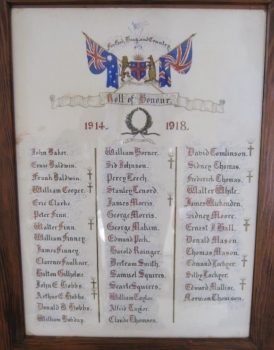 For God, King and Country
Roll of Honour
1914. 1918.
John Baker.
Ernest Baldwin.
Frank Baldwin.
William Cooper.
Eric Clarke.
Peter Finn.
Walter Finn.
William Finney.
James Finney.
Clarence Faulkner.
Hulton
John E. Hobbs.
Arthur E. Hobbs.
Donald R. Hobbs.
William Hobday.
William Horner.
Sid Johnson.
Percy Leech.
Stanley Lenord.
James Morris.
George Morris.
George Makim.
Edmund Peek.
Harold Rainger.
Bertram Smith.
Samuel Squires.
Searle Squires.
William Taylor.
Alfred Taylor.
Claude Thomson.
David Tomlinson.
Sidney Thomas.
Frederick Thomas.
Walter Whyte.
James
Sidney Moore.
Ernest J. Hall.
Donald Mason.
Thomas Mason.
Edmund
Silby
Edward
Norman Thomson.